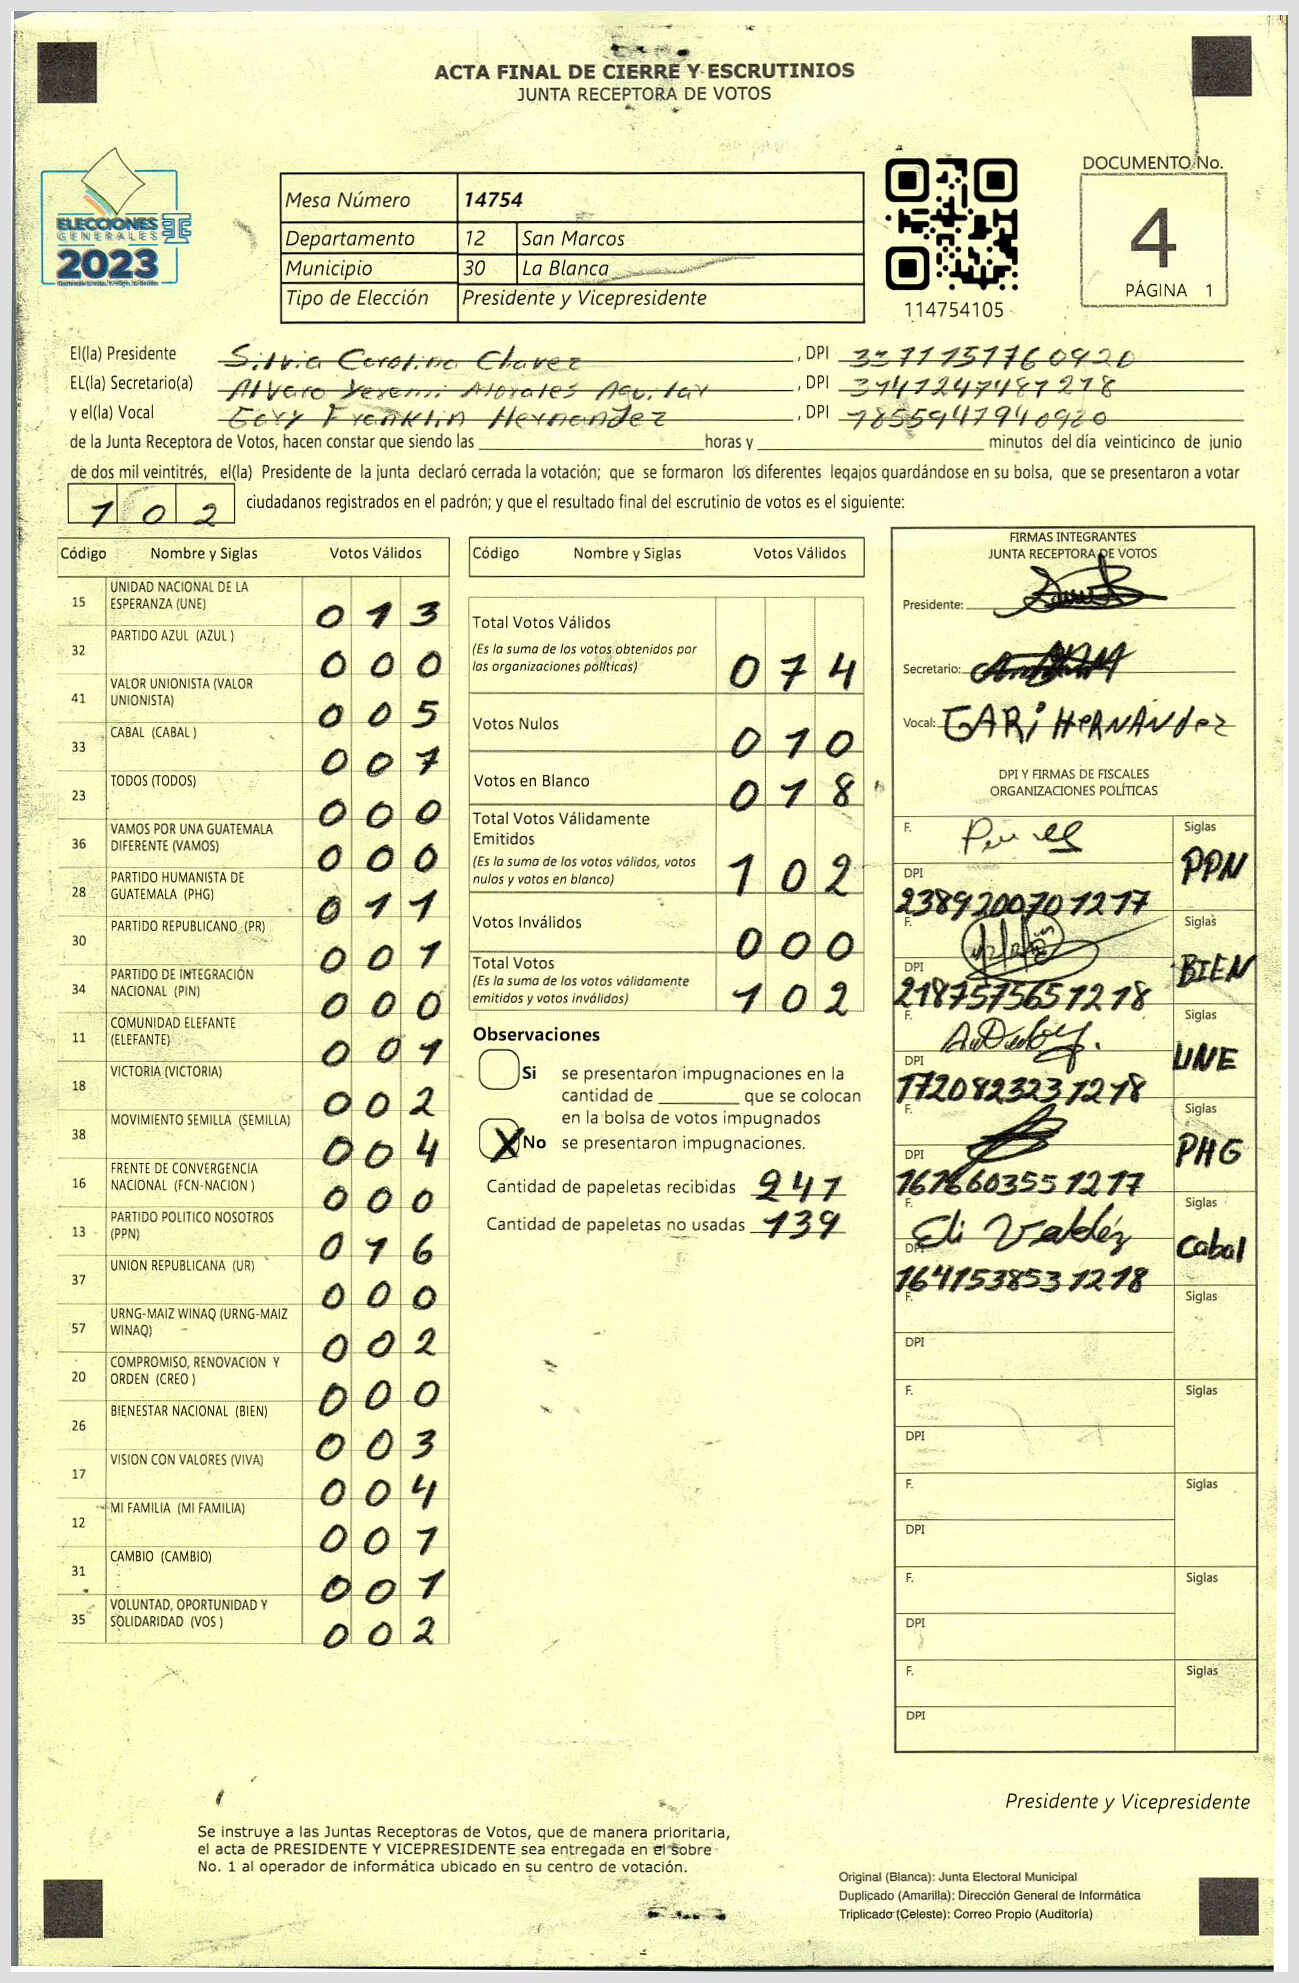 ACTA FINAL DE CIERRE Y ESCRUTINIOS
JUNTA RECEPTORA DE VOTOS
ELECCIONES
GENERALES
2023
Mesa Número 14754
Departamento 12 San Marcos
Municipio 30 La Blanca
Tipo de Elección Presidente y Vicepresidente
114754105
DOCUMENTO No.
4
PÁGINA 1
El(la) Presidente Silvia Carolina Chavez , DPI
EL(la) Secretario(a) Alvaro Yeremi Morales Aguilar , DPI 3141247481218
y el(la) Vocal Gary Franklin Hernandez , DPI 1855941940920
de la Junta Receptora de Votos, hacen constar que siendo las horas y minutos del día veinticinco de junio
de dos mil veintitrés, el(la) Presidente de la junta declaró cerrada la votación; que se formaron los diferentes legajos guardándose en su bolsa, que se presentaron a votar
102 ciudadanos registrados en el padrón; y que el resultado final del escrutinio de votos es el siguiente:
Código Nombre y Siglas Votos Válidos
15 UNIDAD NACIONAL DE LA
ESPERANZA (UNE) 013
32 PARTIDO AZUL (AZUL ) 000
41 VALOR UNIONISTA (VALOR
UNIONISTA) 005
33 CABAL (CABAL ) 007
23 TODOS (TODOS) 000
36 VAMOS POR UNA GUATEMALA
DIFERENTE (VAMOS) 000
28 PARTIDO HUMANISTA DE
GUATEMALA (PHG) 011
30 PARTIDO REPUBLICANO (PR) 001
34 PARTIDO DE INTEGRACIÓN
NACIONAL (PIN) 000
11 COMUNIDAD ELEFANTE
(ELEFANTE) 001
18 VICTORIA (VICTORIA) 002
38 MOVIMIENTO SEMILLA (SEMILLA) 004
16 FRENTE DE CONVERGENCIA
NACIONAL (FCN-NACION ) 000
13 PARTIDO POLITICO NOSOTROS
(PPN) 016
37 UNION REPUBLICANA (UR) 000
57 URNG-MAIZ WINAQ (URNG-MAIZ
WINAQ) 002
20 COMPROMISO, RENOVACION Y
ORDEN (CREO ) 000
26 BIENESTAR NACIONAL (BIEN) 003
17 VISION CON VALORES (VIVA) 004
12 MI FAMILIA (MI FAMILIA) 001
31 CAMBIO (CAMBIO) 001
35 VOLUNTAD, OPORTUNIDAD Y
SOLIDARIDAD (VOS ) 002
Código Nombre y Siglas Votos Válidos
Total Votos Válidos
(Es la suma de los votos obtenidos por
las organizaciones políticas) 074
Votos Nulos 010
Votos en Blanco 018
Total Votos Válidamente
Emitidos
(Es la suma de los votos válidos, votos
nulos y votos en blanco) 102
Votos Inválidos 000
Total Votos
(Es la suma de los votos válidamente
emitidos y votos inválidos) 102
Observaciones
Si se presentaron impugnaciones en la
cantidad de que se colocan
en la bolsa de votos impugnados
X No se presentaron impugnaciones.
Cantidad de papeletas recibidas 241
Cantidad de papeletas no usadas 139
FIRMAS INTEGRANTES
JUNTA RECEPTORA DE VOTOS
Presidente:
Secretario:
Vocal: GARI HERNANdez
DPI Y FIRMAS DE FISCALES
ORGANIZACIONES POLÍTICAS
F. Siglas
PPN
DPI
2389200701217
F. Siglas
BIEN
DPI
2187575651218
F. Siglas
UNE
DPI
1720823231218
F. Siglas
PHG
DPI
1676603551217
F. Eli Valdéz Siglas
Cabal
DPI
1641538531218
F. Siglas
DPI
F. Siglas
DPI
F. Siglas
DPI
F. Siglas
DPI
F. Siglas
DPI
Presidente y Vicepresidente
Se instruye a las Juntas Receptoras de Votos, que de manera prioritaria,
el acta de PRESIDENTE Y VICEPRESIDENTE sea entregada en el sobre
No. 1 al operador de informática ubicado en su centro de votación.
Original (Blanca): Junta Electoral Municipal
Duplicado (Amarilla): Dirección General de Informática
Triplicado (Celeste): Correo Propio (Auditoría)